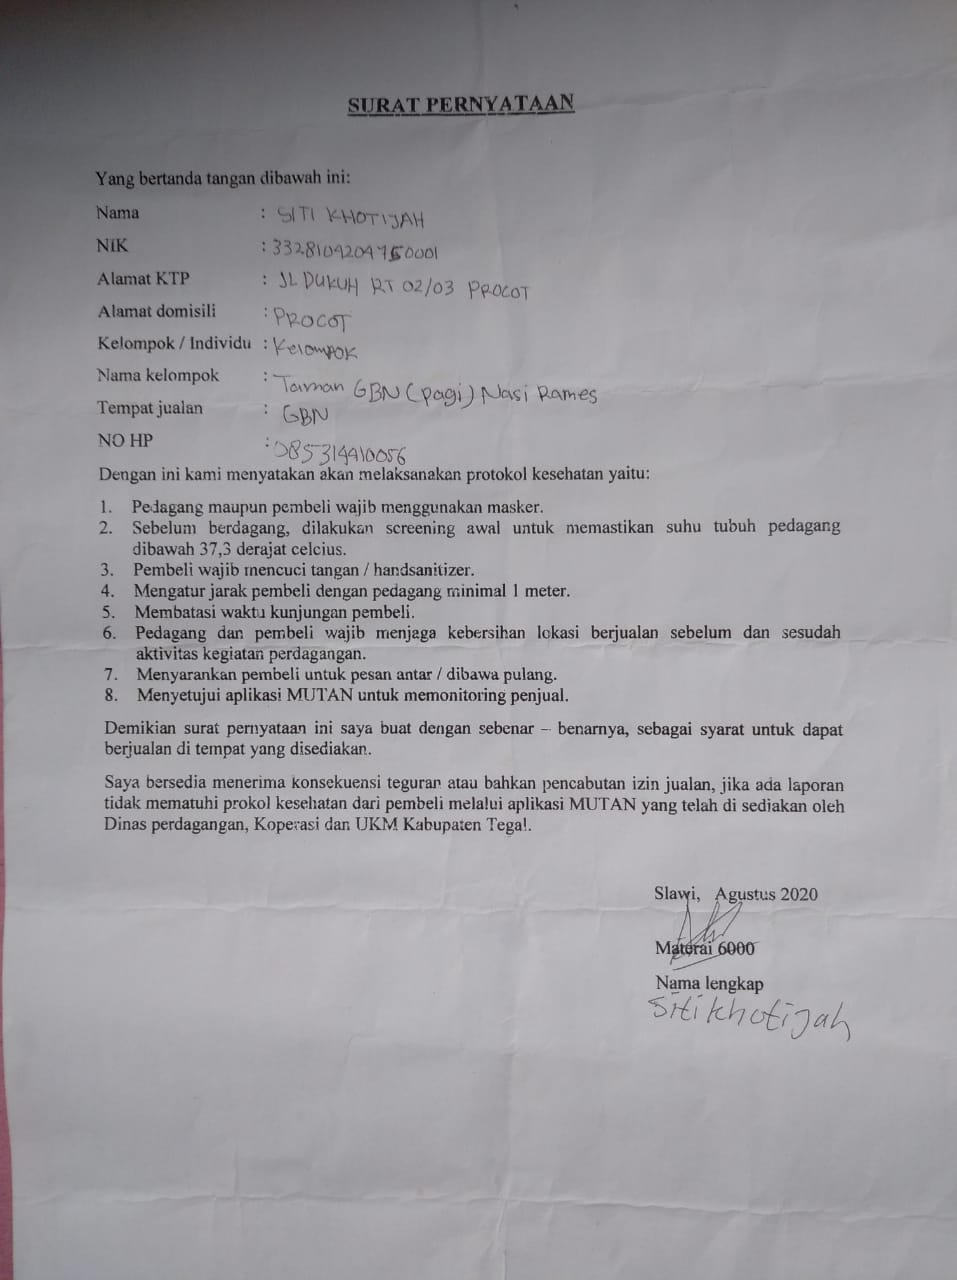 SURAT PERNYATAAN
Yang bertanda tangan dibawah ini:
Nama : SITI KHOTIJAH
NIK :
Alamat KTP : JL DUKUH RT 02/03 PROCOT
Alamat domisili : PROCOT
Kelompok / Individu : Kelompok
Nama kelompok : Taman GBN (pagi) Nasi Rames
Tempat jualan : GBN
NO HP : 085314410056
Dengan ini kami menyatakan akan melaksanakan protokol kesehatan yaitu:
1. Pedagang maupun pembeli wajib menggunakan masker.
2. Sebelum berdagang, dilakukan screening awal untuk memastikan suhu tubuh pedagang
dibawah 37,3 derajat celcius.
3. Pembeli wajib mencuci tangan / handsanitizer.
4. Mengatur jarak pembeli dengan pedagang minimal 1 meter.
5. Membatasi waktu kunjungan pembeli.
6. Pedagang dan pembeli wajib menjaga kebersihan lokasi berjualan sebelum dan sesudah
aktivitas kegiatan perdagangan.
7. Menyarankan pembeli untuk pesan antar / dibawa pulang.
8. Menyetujui aplikasi MUTAN untuk memonitoring penjual.
Demikian surat pernyataan ini saya buat dengan sebenar – benarnya, sebagai syarat untuk dapat
berjualan di tempat yang disediakan.
Saya bersedia menerima konsekuensi teguran atau bahkan pencabutan izin jualan, jika ada laporan
tidak mematuhi prokol kesehatan dari pembeli melalui aplikasi MUTAN yang telah di sediakan oleh
Dinas perdagangan, Koperasi dan UKM Kabupaten Tegal.
Slawi, Agustus 2020
Materai 6000
Nama lengkap
Siti khotijah